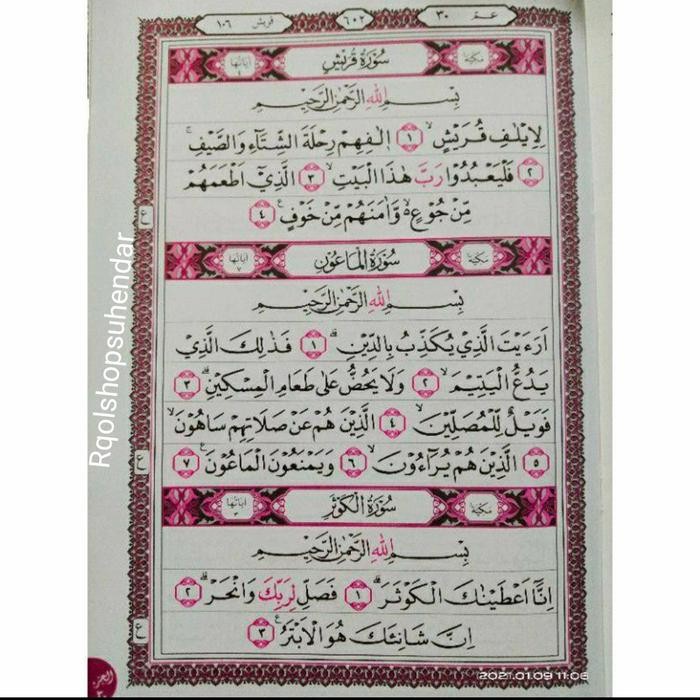 عـمّ ٣٠
٦٠٢
قريش ١٠٦
مكية سُوْرَةُ قُرَيْشٍ اٰياتها ٤
بِسْمِ اللّٰهِ الرَّحْمٰنِ الرَّحِيْمِ
لِاِيْلٰفِ قُرَيْشٍۙ ١ اٖلٰفِهِمْ رِحْلَةَ الشِّتَاۤءِ وَالصَّيْفِۚ
٢ فَلْيَعْبُدُوْا رَبَّ هٰذَا الْبَيْتِۙ ٣ الَّذِيْٓ اَطْعَمَهُمْ
مِّنْ جُوْعٍ ەۙ وَّاٰمَنَهُمْ مِّنْ خَوْفٍ ࣖ ٤
ع
مكية سُوْرَةُ الْمَاعُوْنِ اٰياتها ٧
بِسْمِ اللّٰهِ الرَّحْمٰنِ الرَّحِيْمِ
اَرَءَيْتَ الَّذِيْ يُكَذِّبُ بِالدِّيْنِۗ ١ فَذٰلِكَ الَّذِيْ
يَدُعُّ الْيَتِيْمَۙ ٢ وَلَا يَحُضُّ عَلٰى طَعَامِ الْمِسْكِيْنِۗ ٣
فَوَيْلٌ لِّلْمُصَلِّيْنَۙ ٤ الَّذِيْنَ هُمْ عَنْ صَلَاتِهِمْ سَاهُوْنَۙ
٥ الَّذِيْنَ هُمْ يُرَاۤءُوْنَۙ ٦ وَيَمْنَعُوْنَ الْمَاعُوْنَ ࣖ ٧
ع
مكية سُوْرَةُ الْكَوْثَرِ اٰياتها ٣
بِسْمِ اللّٰهِ الرَّحْمٰنِ الرَّحِيْمِ
اِنَّآ اَعْطَيْنٰكَ الْكَوْثَرَۗ ١ فَصَلِّ لِرَبِّكَ وَانْحَرْۗ ٢
اِنَّ شَانِئَكَ هُوَ الْاَبْتَرُ ࣖ ٣
ع
الجزء
Rqolshopsuhendar
2021.01.09 11:06